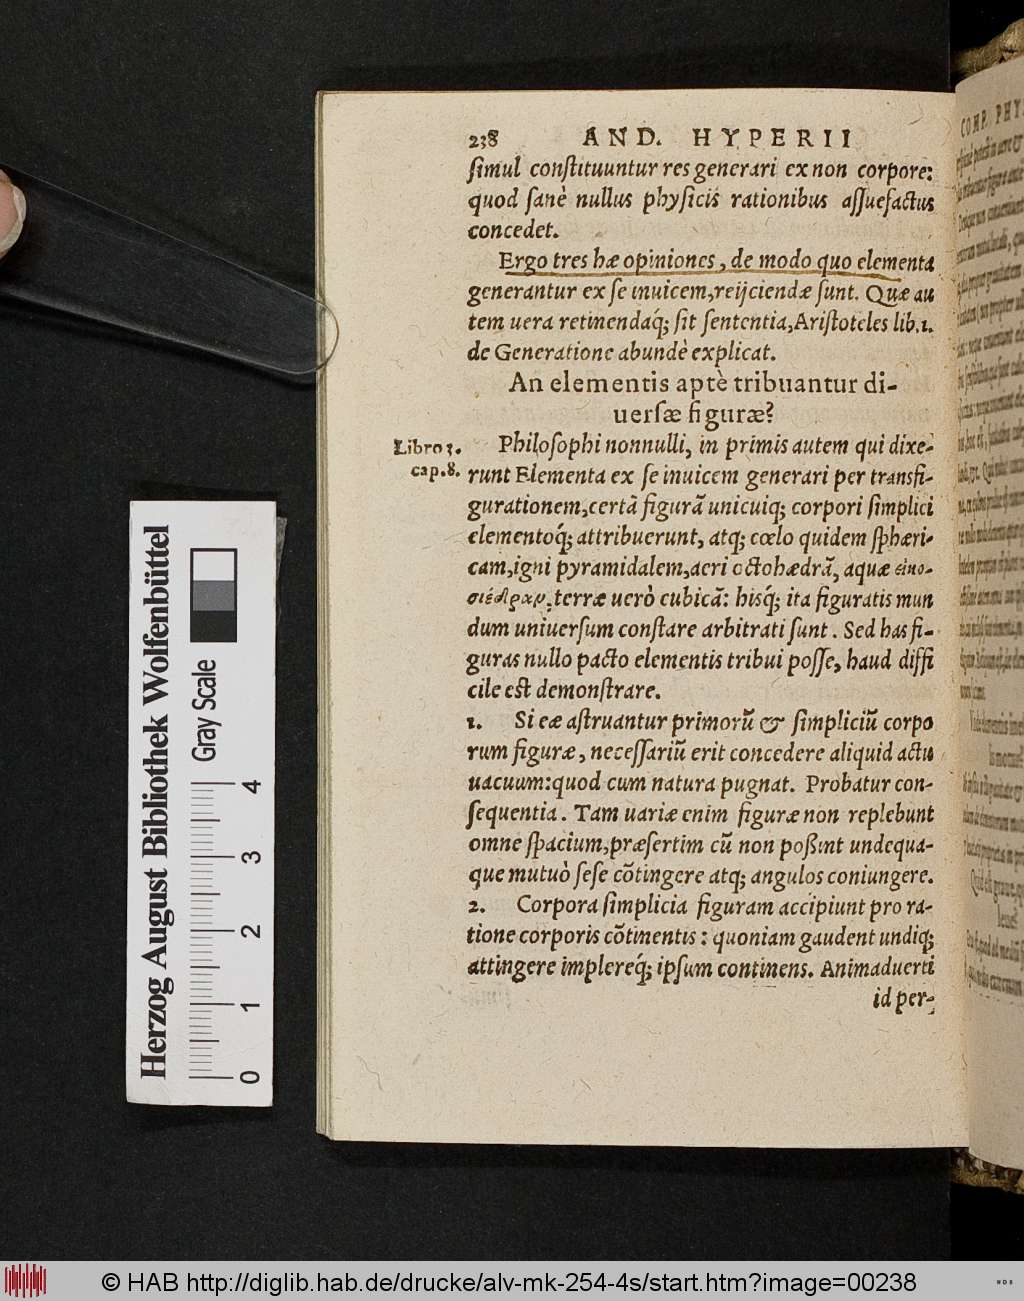 238 AND. HYPERII
ſimul conſtituuntur res generari ex non corpore:
quod ſanè nullus phyſicis rationibus aſſuefactus
concedet.
Ergo tres hæ opiniones, de modo quo elementa
generantur ex ſe inuicem, reijciendæ ſunt. Quæ au
tem uera retinendaq́; ſit ſententia, Ariſtoteles lib. 1.
de Generatione abundè explicat.
An elementis aptè tribuantur di-
uerſæ figuræ?
Libro 3.
cap. 8.
Philoſophi nonnulli, in primis autem qui dixe-
runt Elementa ex ſe inuicem generari per transfi-
gurationem, certā figurā unicuiq; corpori ſimplici
elementoq́; attribuerunt, atq; cœlo quidem ſphæri-
cam, igni pyramidalem, aeri octohædrā, aquæ εἰκο-
σιέδραν, terræ uerò cubicā: hisq́; ita figuratis mun
dum uniuerſum conſtare arbitrati ſunt. Sed has fi-
guras nullo pacto elementis tribui poſſe, haud diffi
cile eſt demonſtrare.
1. Si eæ aſtruantur primorū & ſimpliciū corpo
rum figuræ, neceſſariū erit concedere aliquid actu
uacuum: quod cum natura pugnat. Probatur con-
ſequentia. Tam uariæ enim figuræ non replebunt
omne ſpacium, præſertim cū non poßint undequa-
que mutuò ſeſe cōtingere atq; angulos coniungere.
2. Corpora ſimplicia figuram accipiunt pro ra-
tione corporis cōtinentis: quoniam gaudent undiq;
attingere implereq́; ipſum continens. Animaduerti
id per-
Herzog August Bibliothek Wolfenbüttel
Gray Scale
0 1 2 3 4
COMP. PHY
© HAB http://diglib.hab.de/drucke/alv-mk-254-4s/start.htm?image=00238
WDB